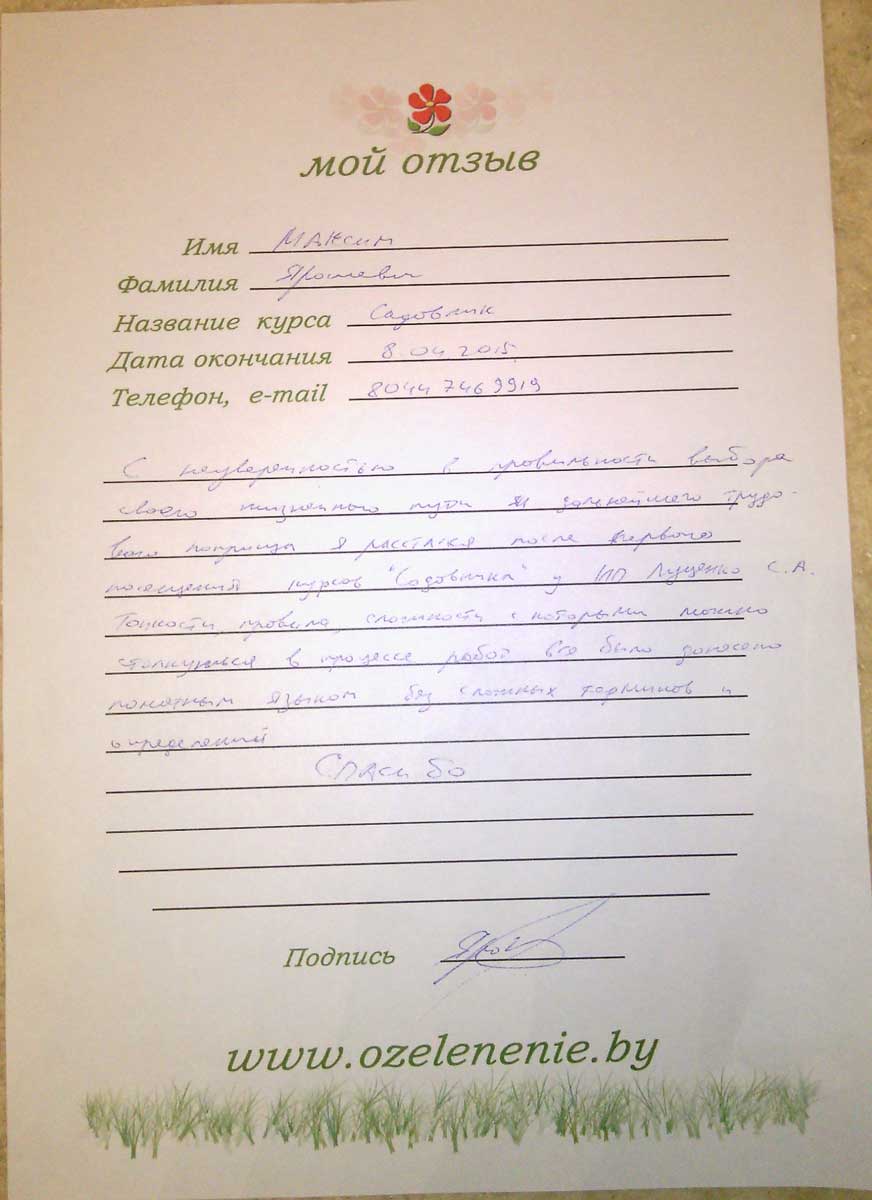 мой отзыв
Имя Максим
Фамилия Ярошевич
Название курса Садовник
Дата окончания 8.04.2015
Телефон, e-mail 8044 746 9919
С неуверенностью в правильности выбора
своего жизненного пути и дальнейшего трудо-
вого поприща я расстался после первого
посещения курсов "Садовника" у ИП Луценко С.А.
Тонкости, правила, сложности с которыми можно
столкнуться в процессе работ всё было донесено
понятным языком без сложных терминов и
определений
Спасибо
Подпись
www.ozelenenie.by